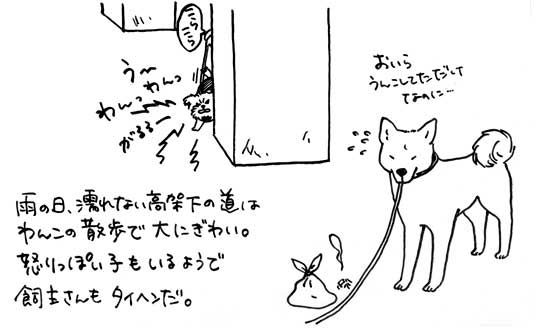 こらこら
う〜
わんっ
わんっ
がるるー
おいら
うんこしてただけ
なのに…
雨の日、濡れない高架下の道は
わんこの散歩で大にぎわい。
怒りっぽい子もいるようで
飼主さんもタイヘンだ。